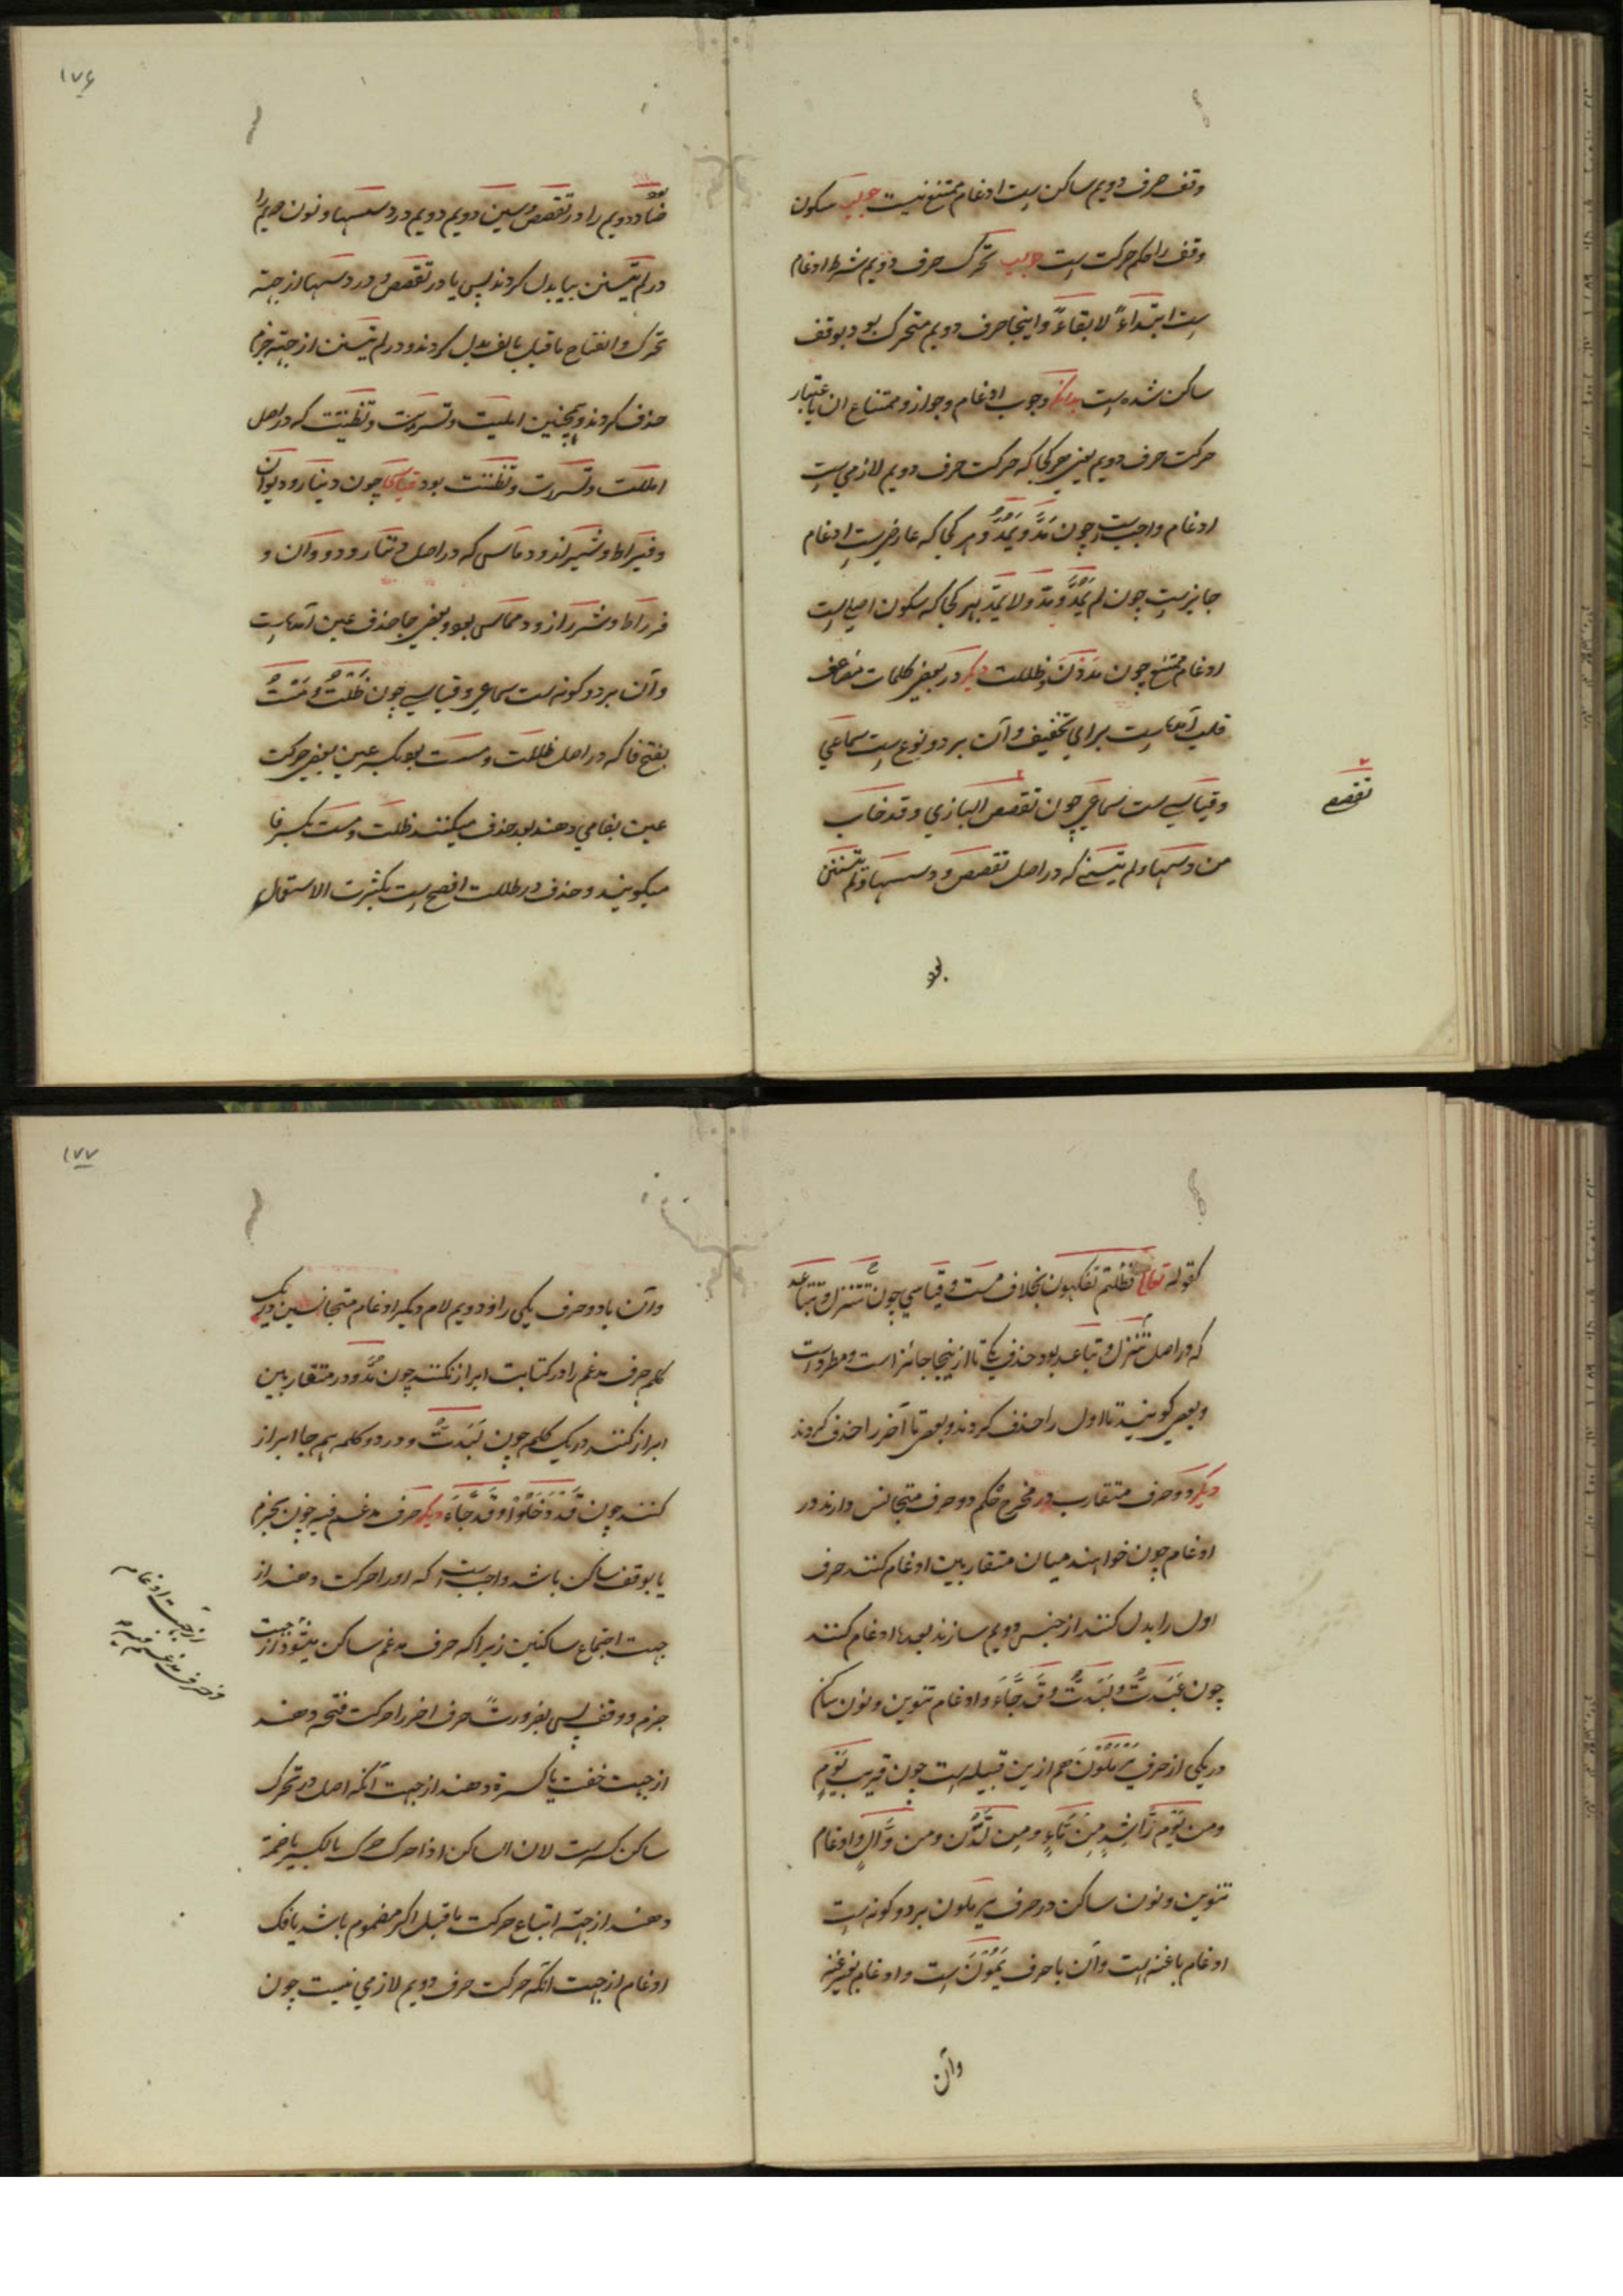 وقف حرف دویم ساکن است ادغام ممتنع نیست جواب سکون
وقف را حکم حرکت است جواب تحرک حرف دویم شرط ادغام
است ابتداءً لا بقاءً و اینجا حرف دویم متحرک بود بوقف
ساکن شده است بدانکه وجوب ادغام و جواز و ممتناع ان باعتبار
حرکت حرف دویم یعنی هر کجا که حرکت حرف دویم لازمی است
ادغام واجبست چون مَدَّ و یَمُدُّ و هر کجا که عارضی است ادغام
جایز است چون لم یَمُدَّ و مدّ و لا یمدّ بهر کجا که سکون اصلی است
ادغام ممتنع چون مَدَدْنَ و ظللت دیگر در بعضی کلمات مضاعف
قلب آمده است برای تخفیف و آن بر دو نوع است سماعی
و قیاسی است سماعی چون تقصص البازی و قد خاب
من دسیها و لم یتسنی که در اصل تقصص و دسسها و لم یتسنن
بود
تقصص
۱۷۶
بود
ضاد دویم را در تقصص و سین دویم دویم در دسسها و نون دویم را
در لم یتسنن بیا بدل کردند پس یا در تقصص و در دسیها از جهة
تحرک و انفتاح ماقبل بالف بدل کردند و در لم یتسنن از جهة جزم
حذف کردند و همچنین املیت و تسریت و تظنیت که در اصل
املک و تسررت و تظننت بود قیاسی چون دینار و دیوان
و قیراط و شیراز و دیماس که در اصل دنّار و دووان و
قرراط و شرراز و دمماس بود و بعضی جا حذف عین آمده است
و آن بر دو گونه است سماعی و قیاسی چون ظَلْتُ و مَسْتُ
بفتح فا که در اصل ظللت و مسست بود بکسر عین بعضی حرکت
عین بفا می دهند بعد حذف میکنند ظلت و مست بکسر فا
میگویند و حذف در ظللت افصح است بکثرت الاستعمال
کقوله تعالی فظلتم تفکهون بخلاف مست و قیاسی چون تَنَزل و تباعد
که در اصل تتنزل و تتباعد بود حذف یک تا از ینجا جائز است و مطرد است
و بعضی گویند تا اول را حذف کردند و بعضی تا آخر را حذف کردند
دیگر دو حرف متقارب در مخرج حکم دو حرف متجانس دارند در
ادغام چون خواهند میان متقاربین ادغام کنند حرف
اول را بدل کنند از جنس دویم سازند بعدها ادغام کنند
چون عَبَدتُّ و لَبَدتُّ و قَد جَّاءَ و ادغام تنوین و نون ساکن
در یکی از حرف یَرْمَلُوْنَ هم از ین قبیله است چون قریب یَّوم
و من یَّوم رَّاشد مِن مَّاءٍ و مِن لَّدُن و من وَّالٍ و ادغام
تنوین و نون ساکن در حرف یرملون بر دو گونه است
ادغام باغنه است و آن باحرف یَمُوْنَ است و ادغام بغیر غنه
وآن
۱۷۷
وآن با دو حرف یکی را و دویم لام دیگر ادغام متجانسین در یک
کلمه حرف مدغم را در کتابت ابراز نکنند چون مُدَّ و در متقاربین
ابراز کنند در یک کلمه چون لَبَدتُّ و در دو کلمه هم جا ابراز
کنند چون قَد دَخَلُوْا و قَد جَّاءَ دیگر حرف مدغم فیه چون بجزم
یا بوقف ساکن باشد واجبست که اورا حرکت دهند از
جهت اجتماع ساکنین زیرا که حرف مدغم ساکن میشود از جهت
جزم و وقف پس بضرورت حرف اخر را حرکت فتحه دهند
از جهت خفت یا کسره دهند از جهت آنکه اصل در تحرک
ساکن کسر است لان الساکن اذا حرک حرک بالکسر یا ضمة
دهند از جهة اتباع حرکت ماقبل اگر مضموم باشد یا فک
ادغام از جهت انکه حرکت حرف دویم لازمی نیست چون
از جهت ادغام
و حرف مدغم فیه